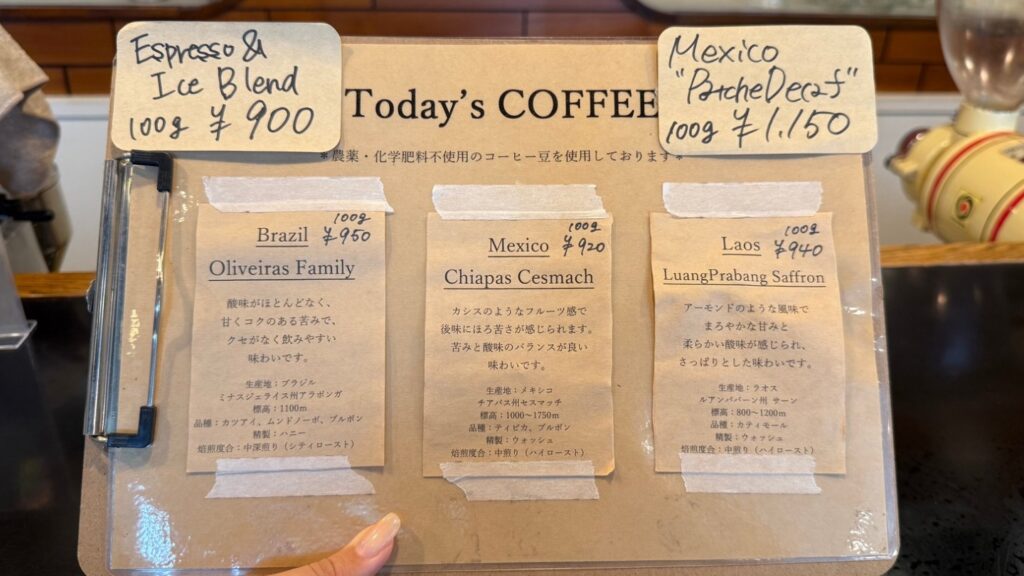 Espresso &
Ice Blend
100g ¥900
Mexico
"Patche Decaf"
100g ¥1.150
Today's COFFEE
*農薬・化学肥料不使用のコーヒー豆を使用しております*
100g
Brazil ¥950
Oliveiras Family
酸味がほとんどなく、
甘くコクのある苦みで、
クセがなく飲みやすい
味わいです。
生産地：ブラジル
ミナスジェライス州アラポンガ
標高：1100m
品種：カツアイ、ムンドノーボ、ブルボン
精製：ハニー
焙煎度合：中深煎り（シティロースト）
100g
Mexico ¥920
Chiapas Cesmach
カシスのようなフルーツ感で
後味にほろ苦さが感じられます。
苦みと酸味のバランスが良い
味わいです。
生産地：メキシコ
チアパス州セスマッチ
標高：1000～1750m
品種：ティピカ、ブルボン
精製：ウォッシュ
焙煎度合：中煎り（ハイロースト）
100g
Laos ¥940
LuangPrabang Saffron
アーモンドのような風味で
まろやかな甘みと
柔らかい酸味が感じられ、
さっぱりとした味わいです。
生産地：ラオス
ルアンパバーン州 サーン
標高：800～1200m
品種：カティモール
精製：ウォッシュ
焙煎度合：中煎り（ハイロースト）